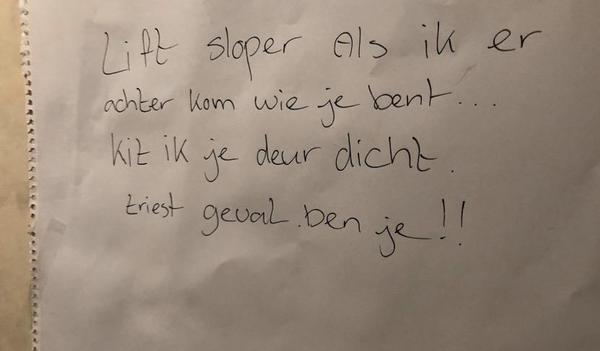 Lift sloper Als ik er
achter kom wie je bent...
kit ik je deur dicht.
triest geval.ben je!!